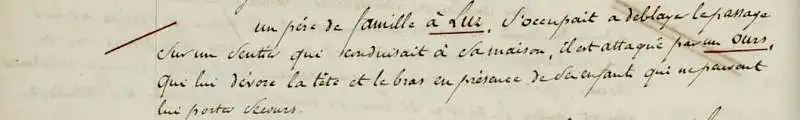 un père de famille à Luz, s'occupait a deblayer le passage
sur un sentier qui conduisait à sa maison, il est attaqué par un ours,
qui lui dévore la tête et le bras en présence de ses enfants qui ne peuvent
lui porter secours.